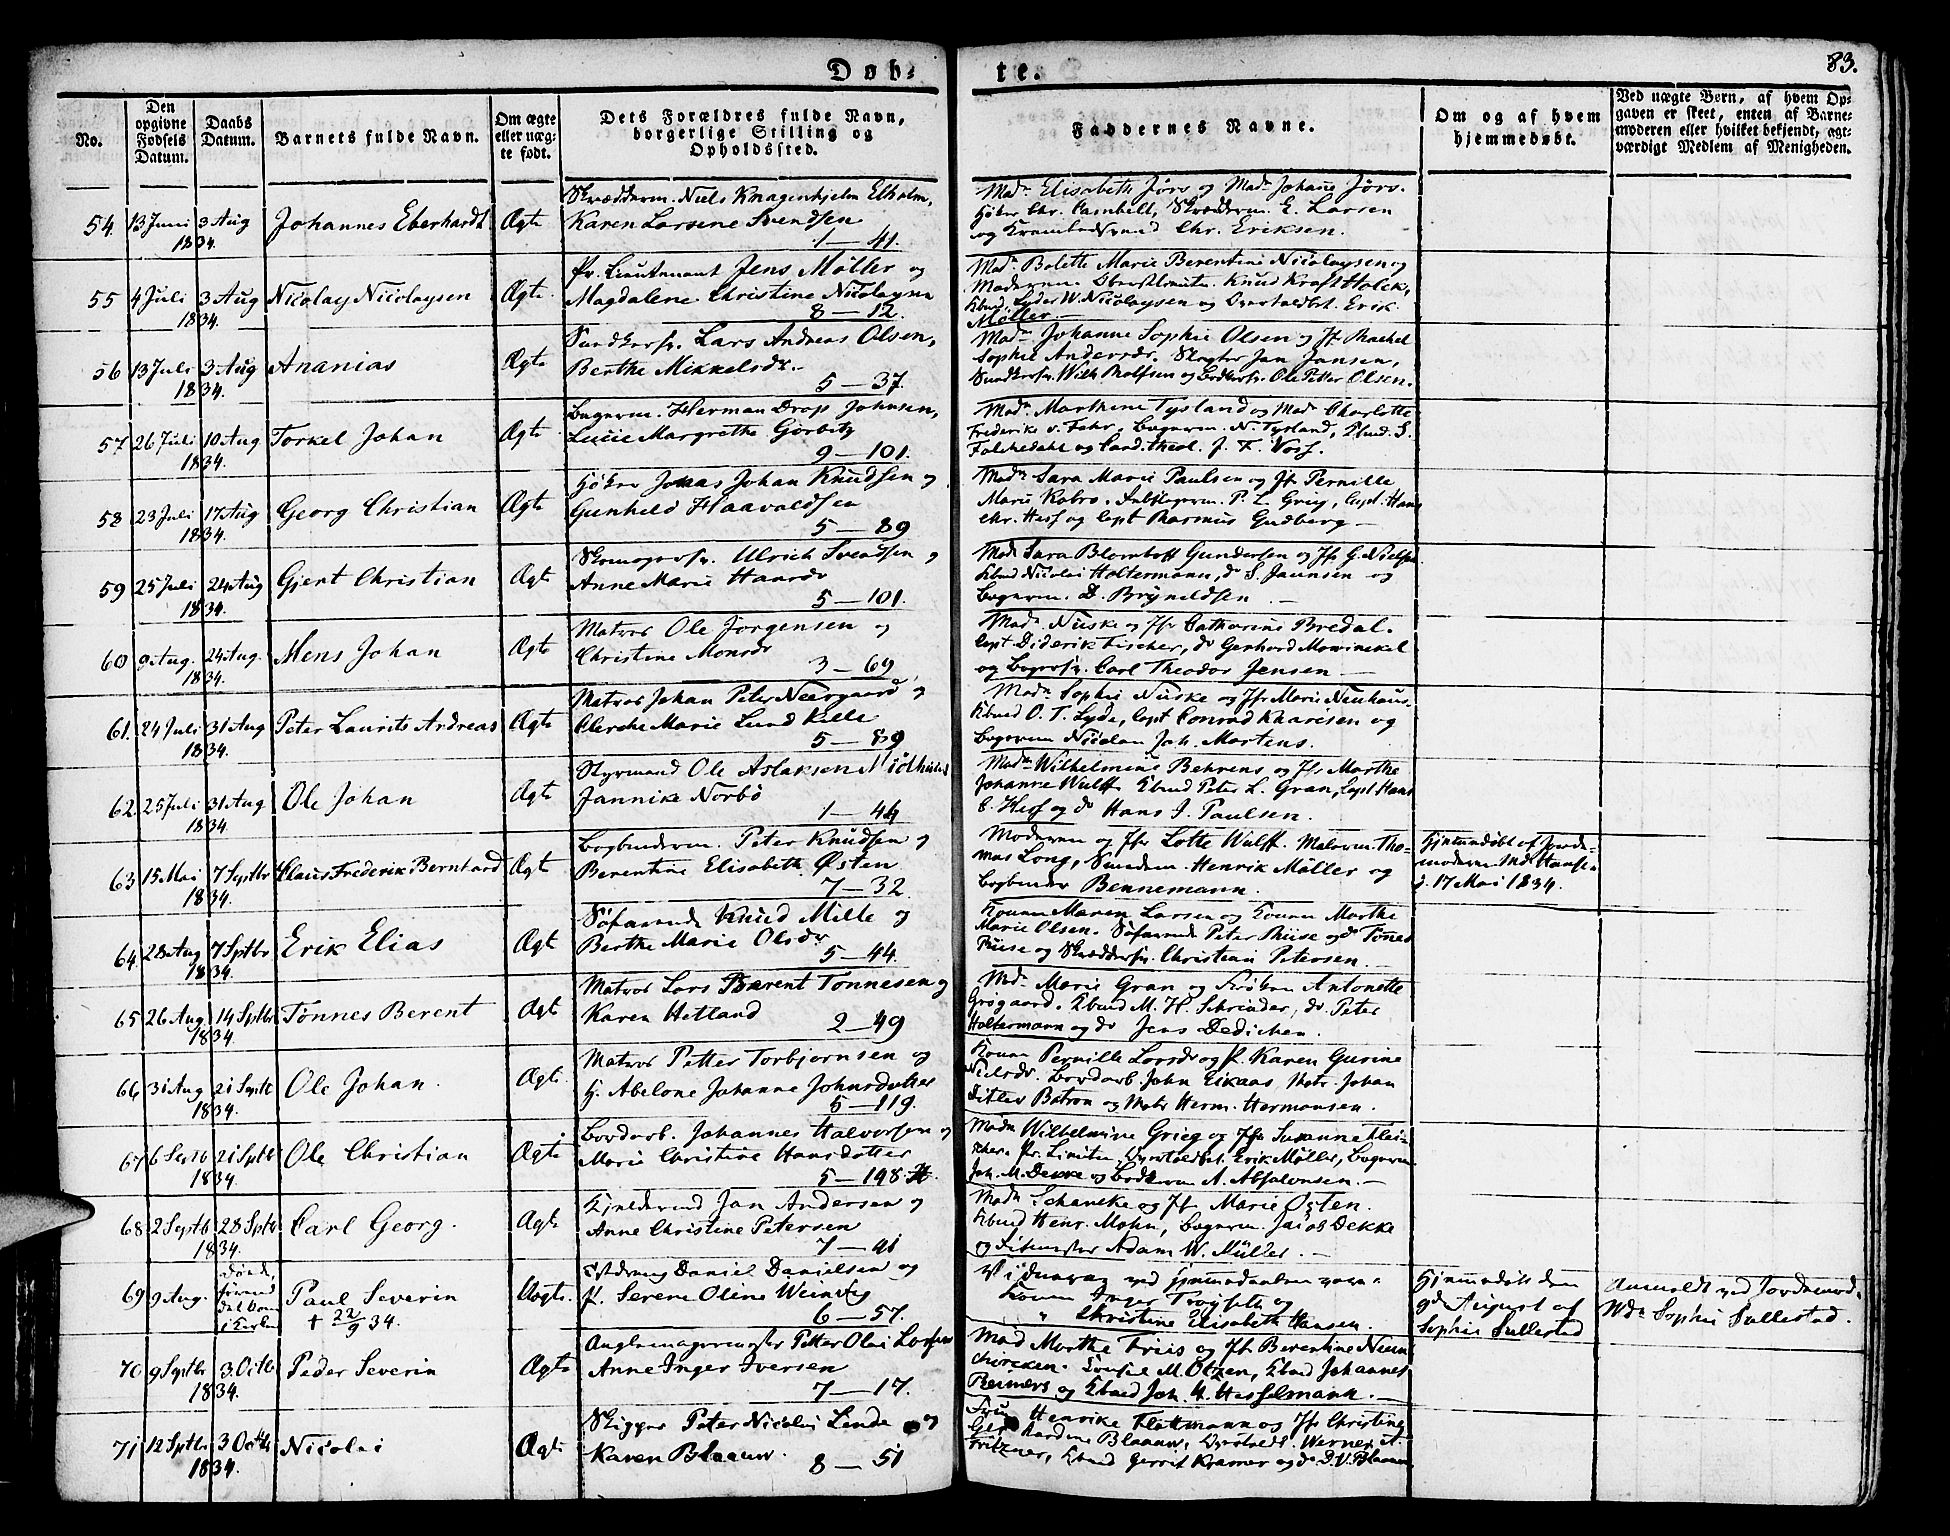 Døb-
te.
83.
No.
Den opgivne Fødsels Datum.
Daabs Datum.
Barnets fulde Navn.
Om ægte eller uæg-te født.
Dets Forældres fulde Navn, borgerlige Stilling og Opholdssted.
Faddernes Navne.
Om og af hvem hjemmedøbt.
Ved uægte Børn, af hvem Op-gaven er skeet, enten af Barne-moderen eller hvilket bekjendt, agt-værdigt Medlem af Menigheden.
54. 13 Juni 3 Aug 1834. Johannes Eberhardt Ægte
Skrædderm. Niels Knagenhjelm Elholm,
Karen Larsene Svendsen
1 — 41.
Madm Elisabeth Jørs og Madm Johane Jørs.
Høker Chr. Cambell, Skrædderm. E. Larsen
og Chr. Eriksen.
55 4 Juli 3 Aug 1834. Nicolay Nicolaysen Ægte
Pr. Lieutenant Jens Møller og
Magdalene Christine Nicolaysen
8 — 12.
Madm Bolette Marie Berentine Nicolaysen og
Knud Kraft Holck,
Kbmd. Lyder W. Nicolaysen og Erik
Møller. —
56 13 Juli 3 Aug 1834. Ananias Ægte
Lars Andreas Olsen,
Berthe Mikkelsdr.
5 — 37.
Madm Johanne Sophie Olsen og Jf Rachel
Sophie Andersdr. Slagter Jan Jansen,
Wilh Rolfsen og Ole Petter Olsen.
57 26 Juli 10 Aug 1834. Torkel Johan Ægte
Bagerm. Herman Drop Johnsen,
Lucie Margrethe Görbitz
9 — 101.
Madm Marthine Tysland og Madm Charlotte
Frederike v. Fehr, Bagerm. N. Tysland,
og Cand. theol. J. F. Voss.
58 23 Juli 17 Aug 1834. Georg Christian Ægte
Høker Jonas Johan Knudsen og
Gunhild Haavoldsen
5 — 89
Madm Sara Marie Paulsen og Jf Pernille
Marie P. L. Grieg, Capt. Hans
Chr. Hess og Capt Rasmus Gudberg —
59 25 Juli 24 Aug 1834. Gjert Christian Ægte
Ulrich Svendsen og
Anne Marie Haarsdr
5 — 101.
Madm Sara Blomhoff Gundersen og Jfr G. Nielsen
Kbmd Nicolai Holtermann, do S. Jannsen og
Bagerm. D. Bryneldsen —
60 9 Aug. 24 Aug. 1834. Mens Johan Ægte
Matros Ole Jörgensen og
Christine Monsdr
3 — 69.
Madm. Nüske og Jfr Catharine Bredal.
Capt Diderik Fischer, do Gerhard Mowinckel
og Carl Theodor Jensen —
61. 24 Juli 31 Aug 1834. Peter Laurits Andreas Ægte
Matros Johan Peter Neergaard og
Marie Lund
5 — 89
Madm Sophie Nüske og Jfr Marie Neuhaus.
Kbmd O. T. Lyde, Capt Conrad og
Bagerm Nicolan Joh. Martens.
62. 25 Juli 31 Aug 1834 Ole Johan Ægte
Styrmand Ole Aslaksen Midhuus
Jannike Norbö
1 — 44
Madm Wilhelmine Behrens og Jfr Marthe
Johanne Wulff. Kbmd Peter L. Gran, Capt Hans
C. Hess og do Hans J. Paulsen.
63 15 Mai 7 Septbr 1834. Claus Frederik Bernhard Ægte
Bogbinderm. Peter Knudsen og
Berentine Elisabeth Østen
7 — 32
Moderen og Jfr Lotte Wulff. Malerm. Tho-
mas Long, Henrik Møller og
Bogbinder Bennemann.
Hjemmedöbt af Jorde-
moderen Md Hansen
d. 17 Mai 1834.
64. 28 Aug 7 Sptbr 1834. Erik Elias Ægt
Søfarende Knud Mille og
Berthe Marie Olsdr
5 — 44.
Konen Maren Larsen og Konen Marthe
Marie Olsen. Søfarende Peter Riise og do Tönes
Riise og Skræddersv. Christian Petersen —
65 26 Aug 14 Sptbr 1834. Tönnes Berent Ægt
Matros Lars Berent Tonnesen og
Karen Hetland
2 — 49
Md Marie Gran og Frøken Antonette
Grøgaard. Kbmd M. H. Schrieder, do Peter
Holtermann og do Jens Dedichen.
66 31 Aug 21 Septb 1834. Ole Johan. Ægte
Matros Petter Torbjornsen og
H. Abelone Johanne Johnsdotter
5 — 119.
Konen Pernille Larsdr og P. Karen Gurine
Nielsdr. Bordarb. John Eikaas, Matr. Johan
Ditlev Batron og Matr Herm. Hermansen.
67 6 Septb 21 Septb 1834. Ole Christian Ægte
Bordarb. Johannes Halvorsen og
Marie Christine Hansdotter
5 — 198
Madm Wilhelmine Grieg og Jfr Susanne Flei-
scher. Pr. Erik Møller, Bagerm
Joh. M. Dekke og A. Absalonsen. —
68 2 Septb 28 Sptbr 1834. Carl Georg. Ægte
Jan Andersen og
Anne Christine Petersen
7 — 91
Madm Schancke og Jf Marie Østen.
Kbmd Henr. Mohn, Bagerm. Jacob Dekke
og Adam W. Müller. —
69 9 Aug. Döde, förend det kom i Kirken Paul Severin
+ 22/9 34.
Uægte.
Daniel Danielsen og
P. Serene Oline
6 — 57.
Vidner ved Hjemmedaaben vare:
Konen Inger og
" Christine Elisabeth Hansen.
Hjemmedöbt den
9de August af
Sophie Sullestad
Anmeldt ved Jordemod.
Md Sophie Sullestad.
70 9 Septbr 3. Octbr 1834. Peder Severin Ægte
Anglemagermester Petter Olai Larsen
Anne Inger Iversen
7 — 17.
Mad Marthe Friis og Jf. Berentine Neum
M. Olsen, Kbmd Johannes
Reimers og Kbmd Joh. H. Hesselmann. —
71 12 Sptbr 3 Octbr 1834. Nicolai Ægte
Skipper Peter Nicolai Linde og
Karen Blaauw.
8 — 51
Fru Henrike Flottmann og Jfr Christine
Gerhardine Blaauw, Werner A.
Fritzner, Kbmd Gerrit Kramer og do D. V. Blaauw